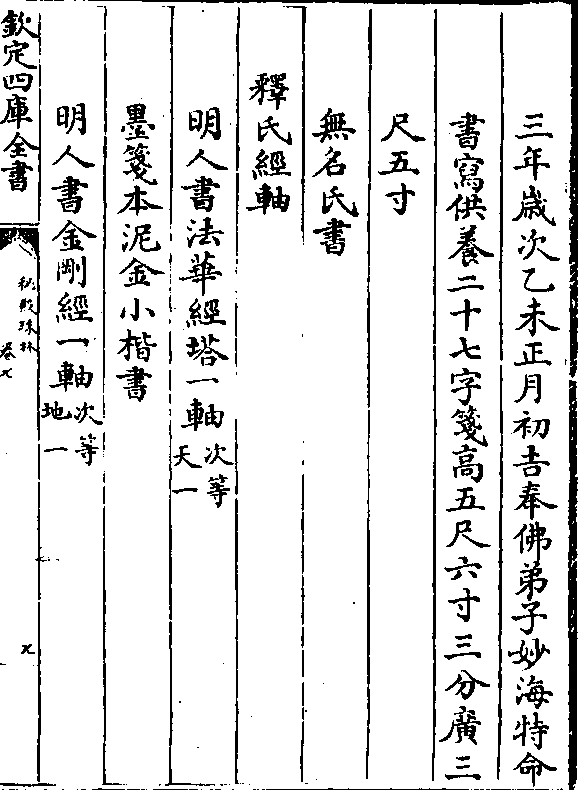 三年歲次乙未正月初吉奉佛弟子妙海特命
書寫供養二十七字箋高五尺六寸三分廣三
尺五寸
無名氏書
釋氏經軸
明人書法華經塔一軸次等天一
墨箋本泥金小楷書
明人書金剛經一軸次等地一
欽定四庫全書
秘殿珠林
卷七
九